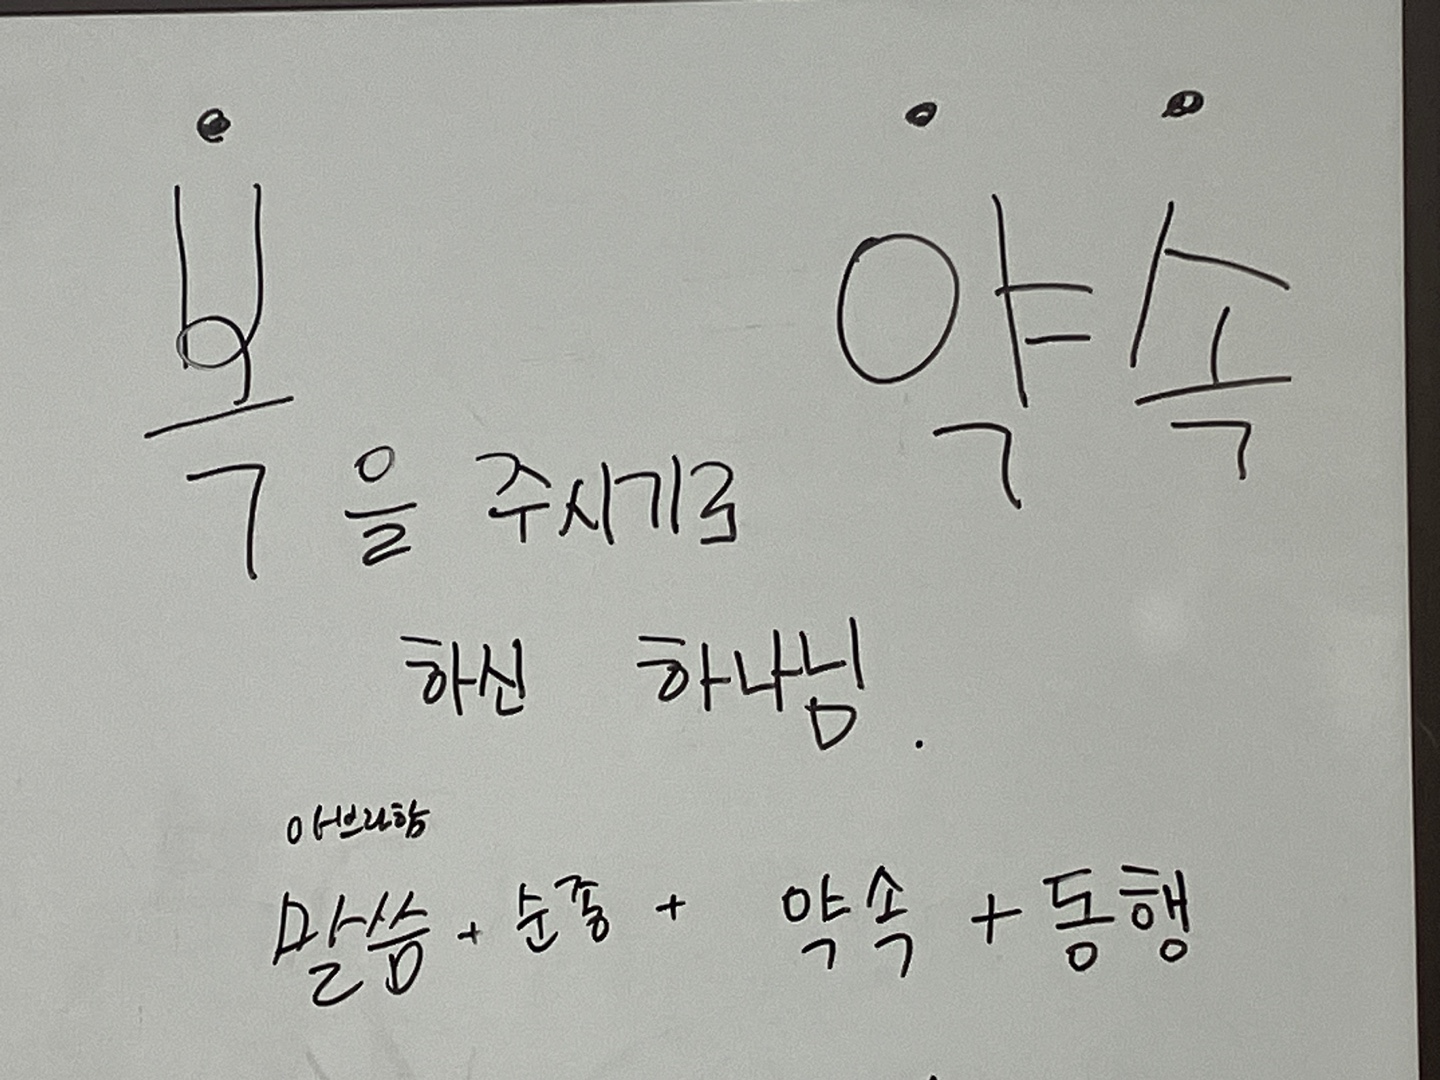 복 약속
을 주시기로
하신 하나님.
아브라함
말씀 + 순종 + 약속 + 동행